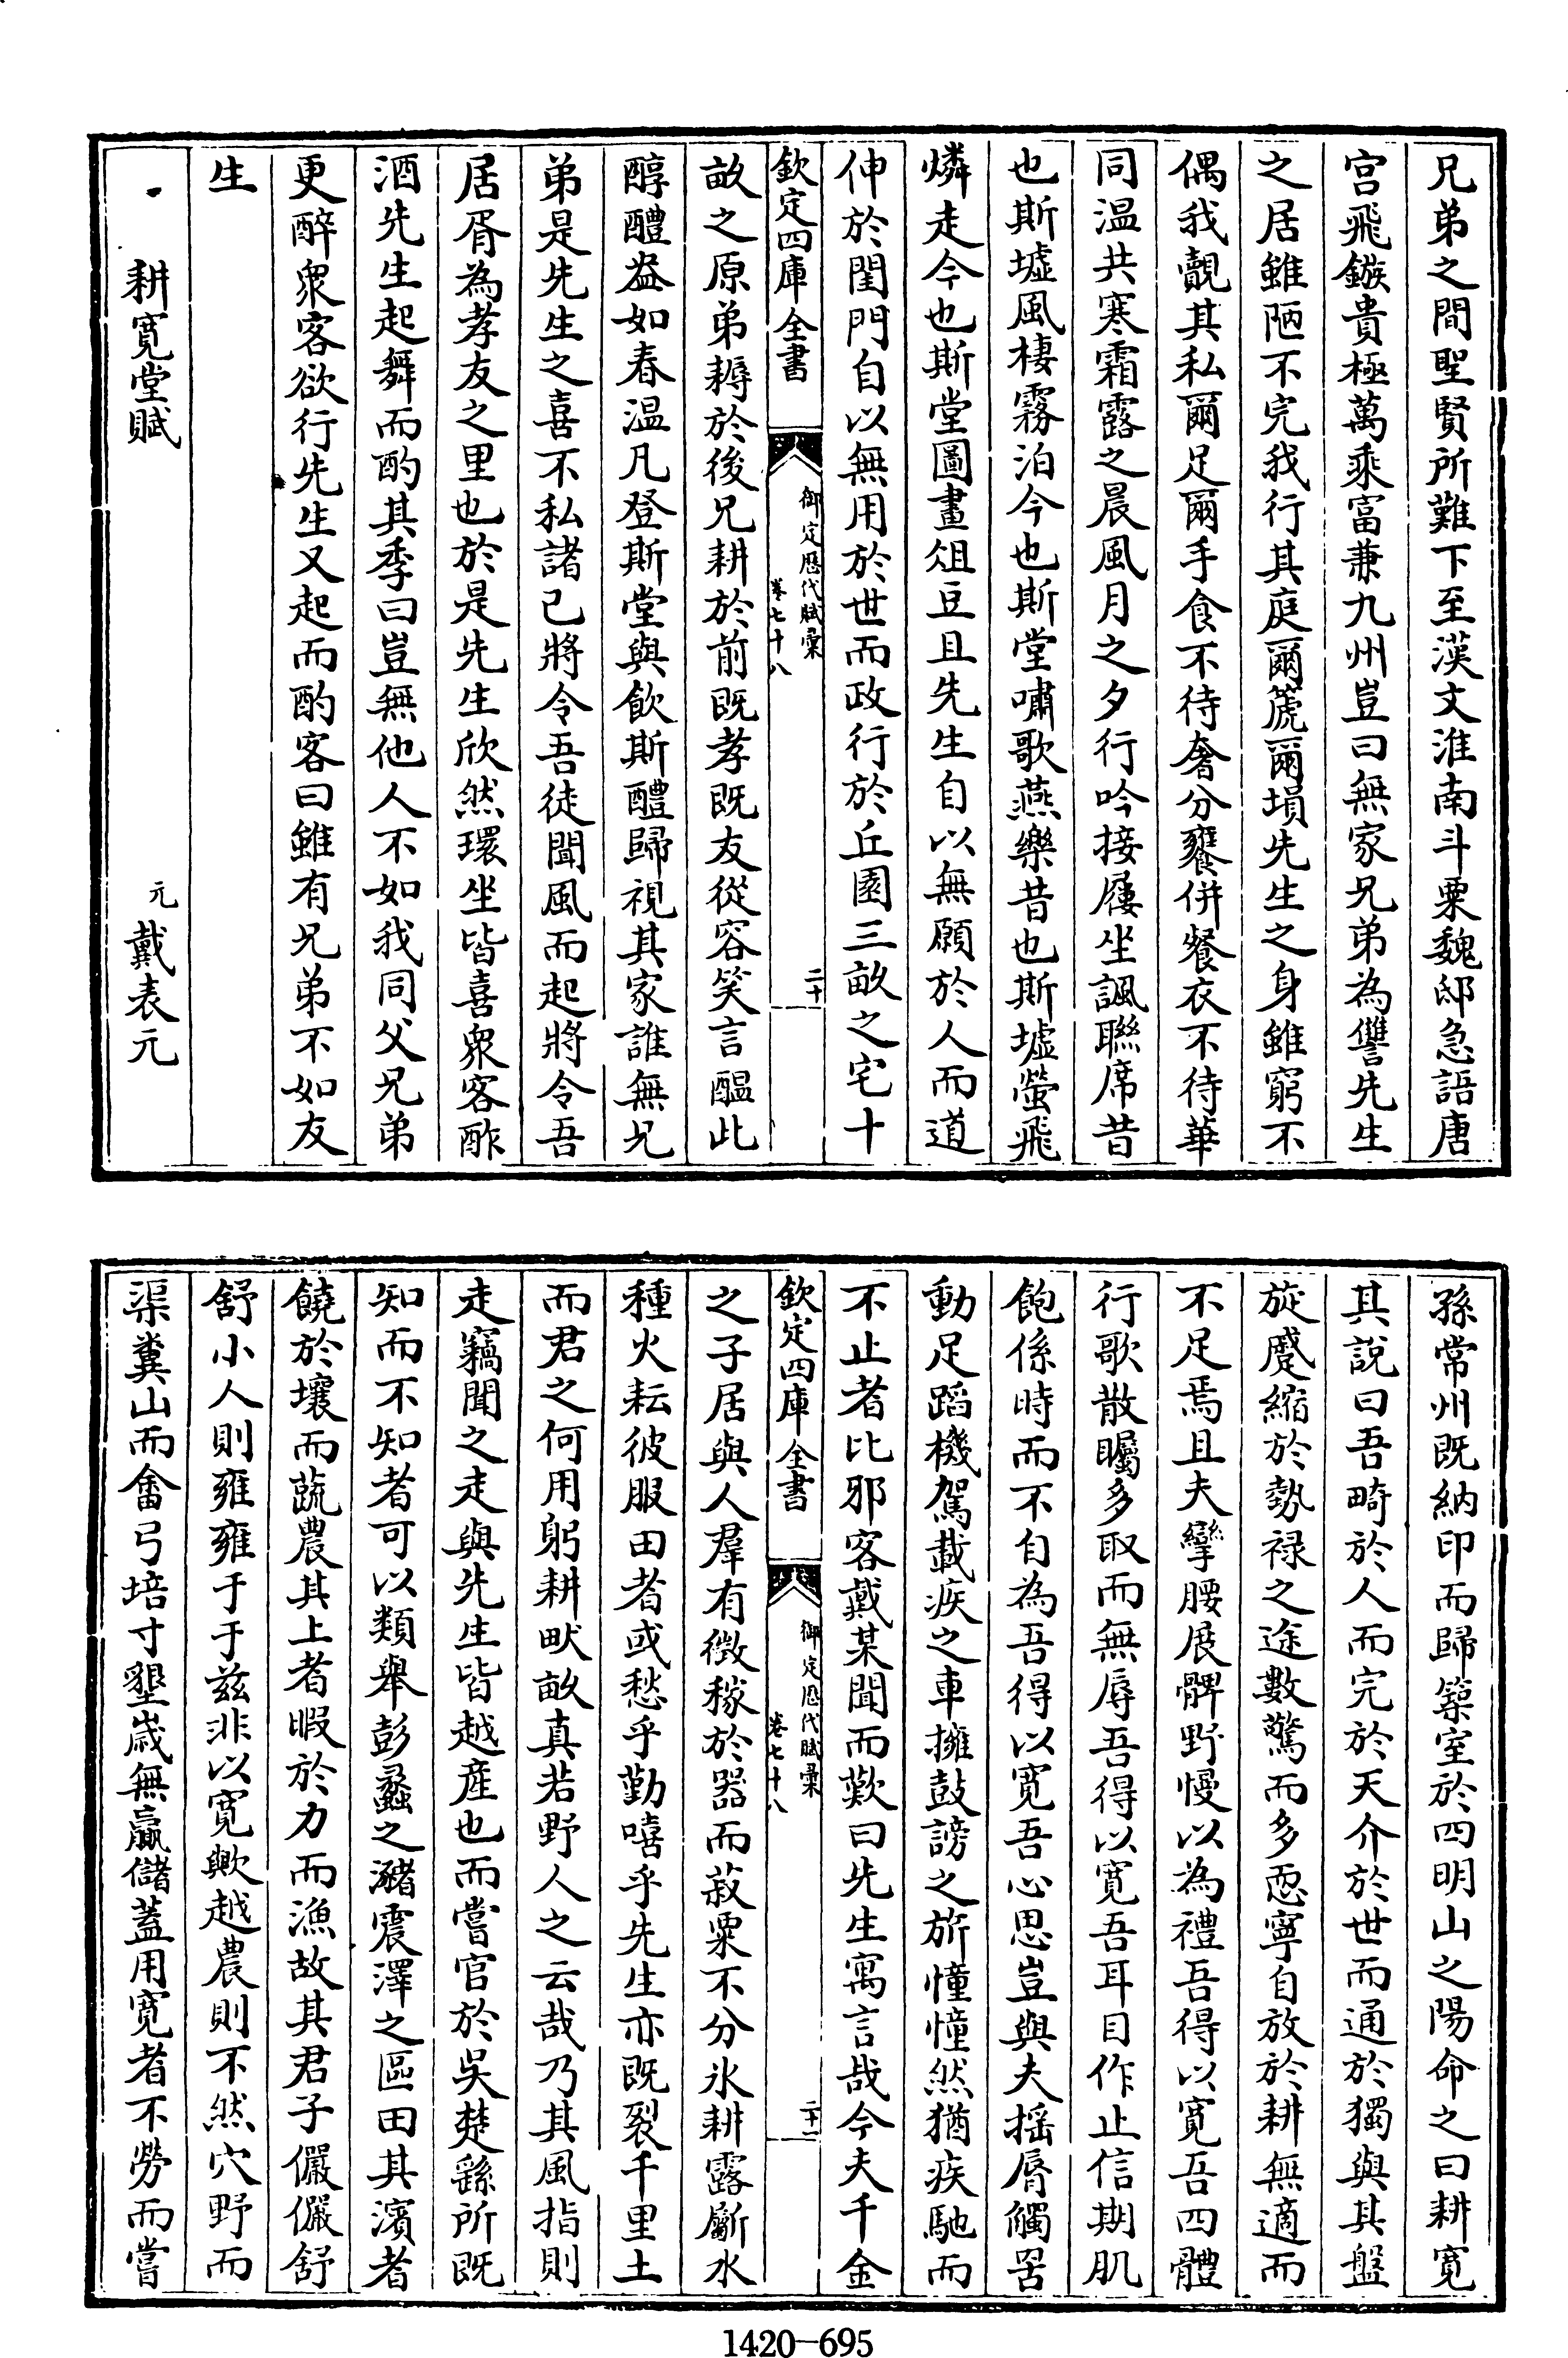 兄弟之間聖賢所難下至漢文淮南斗粟魏邸急語唐
宫飛鏃貴極萬乘富兼九州豈曰無家兄弟為讐先生
之居雖陋不完我行其庭爾篪爾塤先生之身雖窮不
偶我覿其私爾足爾手食不待奢分饔併餐衣不待華
同温共寒霜露之晨風月之夕行吟接屨坐諷聯席昔
也斯墟風棲霧泊今也斯堂嘯歌燕樂昔也斯墟螢飛
燐走今也斯堂圖畫俎豆且先生自以無願於人而道
伸於閨門自以無用於世而政行於丘園三畝之宅十
欽定四庫全書
御定歷代賦彙
卷七十八
二十
畝之原弟耨於後兄耕於前既孝既友從容笑言醖此
醇醴盎如春温凡登斯堂與飲斯醴歸視其家誰無兄
弟是先生之喜不私諸己將令吾徒聞風而起將令吾
居胥為孝友之里也於是先生欣然環坐皆喜衆客酢
酒先生起舞而酌其季曰豈無他人不如我同父兄弟
更醉衆客欲行先生又起而酌客曰雖有兄弟不如友
生
耕寛堂賦
元
戴表元
孫常州既納印而歸築室於四明山之陽命之曰耕寛
其說曰吾畸於人而完於天介於世而通於獨與其盤
旋蹙縮於勢禄之途數驚而多恧寧自放於耕無適而
不足焉且夫攣腰展髀野慢以為禮吾得以寛吾四體
行歌散矚多取而無辱吾得以寛吾耳目作止信期肌
飽係時而不自為吾得以寛吾心思豈與夫揺脣觸罟
動足蹈機駕載疾之車擁鼓謗之旂憧憧然猶疾馳而
不止者比邪客戴某聞而歎曰先生寓言哉今夫千金
欽定四庫全書
御定歷代賦彙
卷七十八
二十一
之子居與人羣有徴稼於器而菽粟不分氷耕露斸水
種火耘彼服田者或愁乎勤嘻乎先生亦既裂千里土
而君之何用躬耕畎畝真若野人之云哉乃其風指則
走竊聞之走與先生皆越產也而嘗官於吳楚繇所既
知而不知者可以類舉彭蠡之瀦震澤之區田其濱者
饒於壤而蔬農其上者暇於力而漁故其君子儼儼舒
舒小人則雍雍于于兹非以寛歟越農則不然穴野而
渠糞山而畬弓培寸墾歲無贏儲蓋用寛者不勞而嘗
1420-695